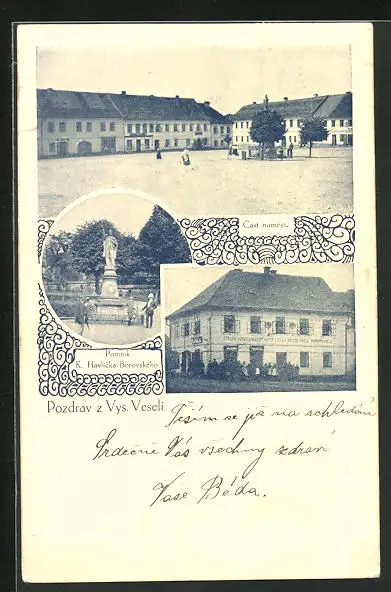 Část náměstí.
Pomník
K. Havlíčka-Borovského.
Pozdrav z Vys. Veselí.
Těším se již na schledání
Srdečně Vás všechny zdraví
Vaše Béda.